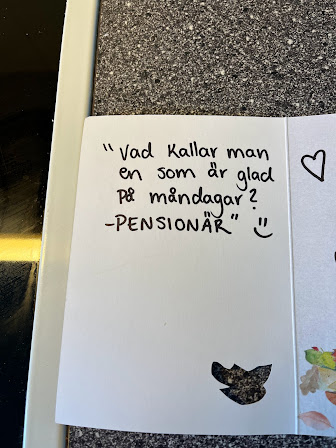 "Vad kallar man
en som är glad
på måndagar?
-PENSIONÄR" :)